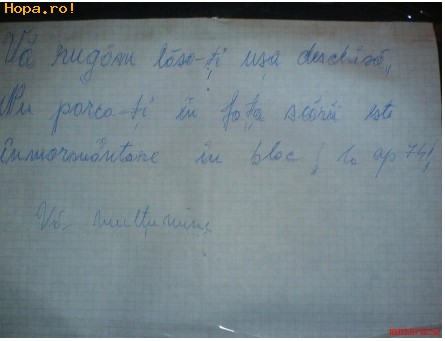 Hopa.ro!
Vă rugăm lăsa-ți ușa deschisă,
Nu parca-ți în fața scării este
înmormântare în bloc! la ap 74!
Vă mulțumim